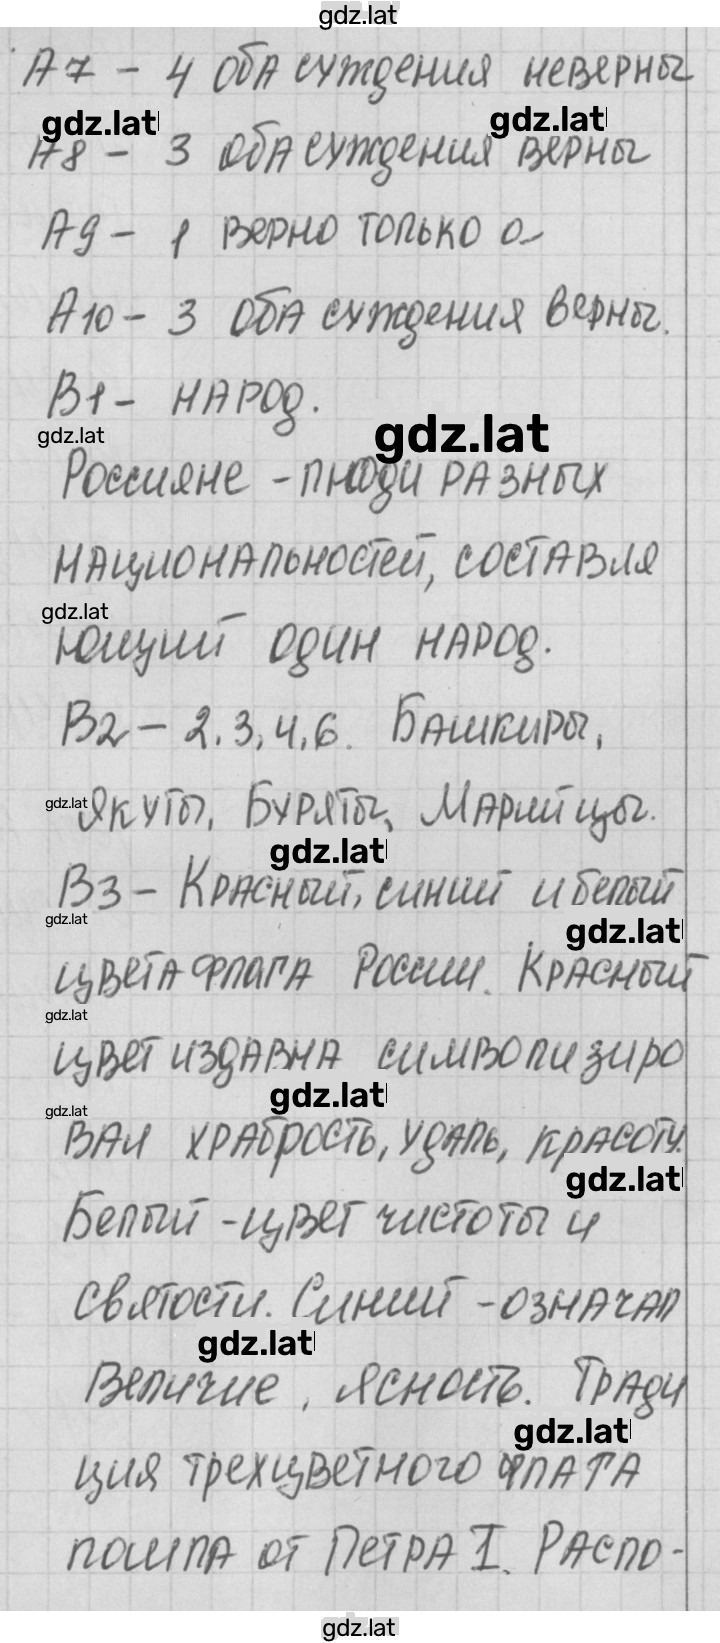 gdz.lat
А7 - 4 оба суждения неверны
gdz.lat gdz.lat
А8 - 3 оба суждения верны
А9 - 1 верно только а
А10 - 3 оба суждения верны.
В1 - народ.
gdz.lat gdz.lat
Россияне - люди разных
национальностей, составля
gdz.lat
ющий один народ.
В2 - 2,3,4,6. Башкиры,
gdz.lat
якуты, Буряты, Марийцы.
gdz.lat
В3 - Красный, синий и белый
gdz.lat gdz.lat
цвета флага России. Красный
gdz.lat
цвет издавна символизиро
gdz.lat
gdz.lat
вал храбрость, удаль, красоту.
gdz.lat
Белый - цвет чистоты и
святости. Синий - означал
gdz.lat
Величие, ясность. Тради
gdz.lat
ция трехцветного флага
пошла от Петра I. Распо-
gdz.lat